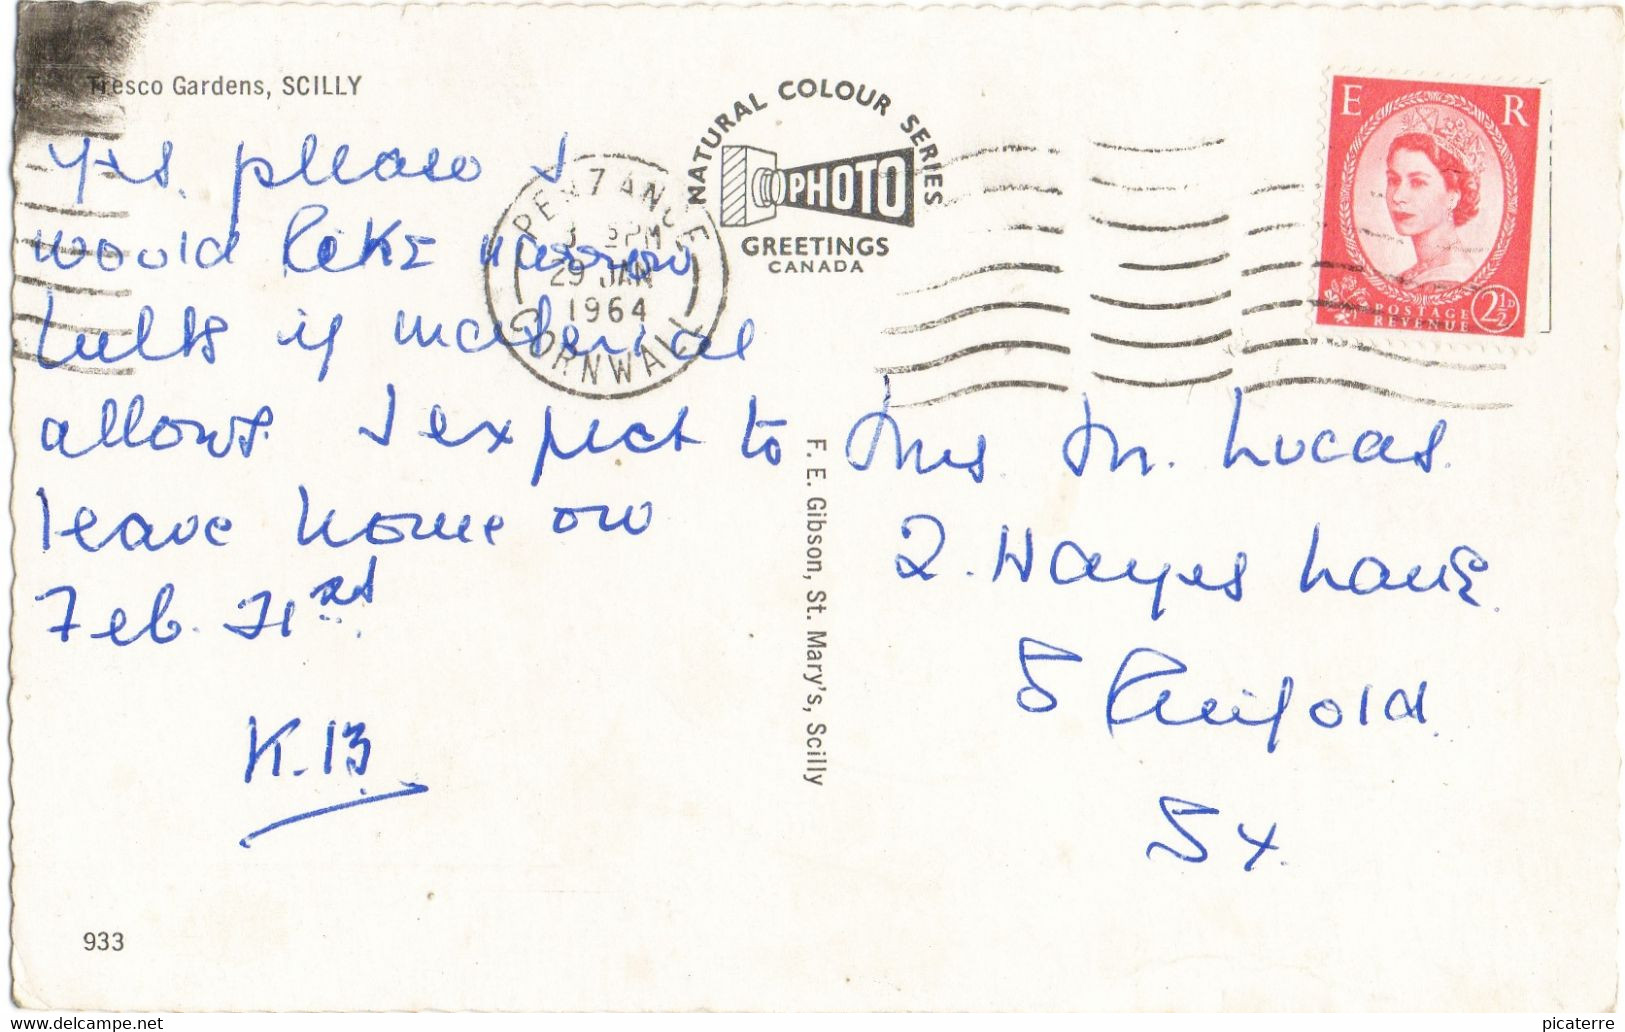 Tresco Gardens, SCILLY
Yes. please I
would like narrow
belts if material
allows. I expect to
leave home on
Feb. 21st
K.B
933
PENZANCE
PM
29 JAN
1964
CORNWALL
NATURAL COLOUR SERIES
PHOTO
GREETINGS
CANADA
F. E. Gibson, St. Mary's, Scilly
E R
POSTAGE
REVENUE
2½D
Mrs. M. Lucas.
2. Hayes Lane.
Slinfold.
Sx.
www.delcampe.net
picaterre